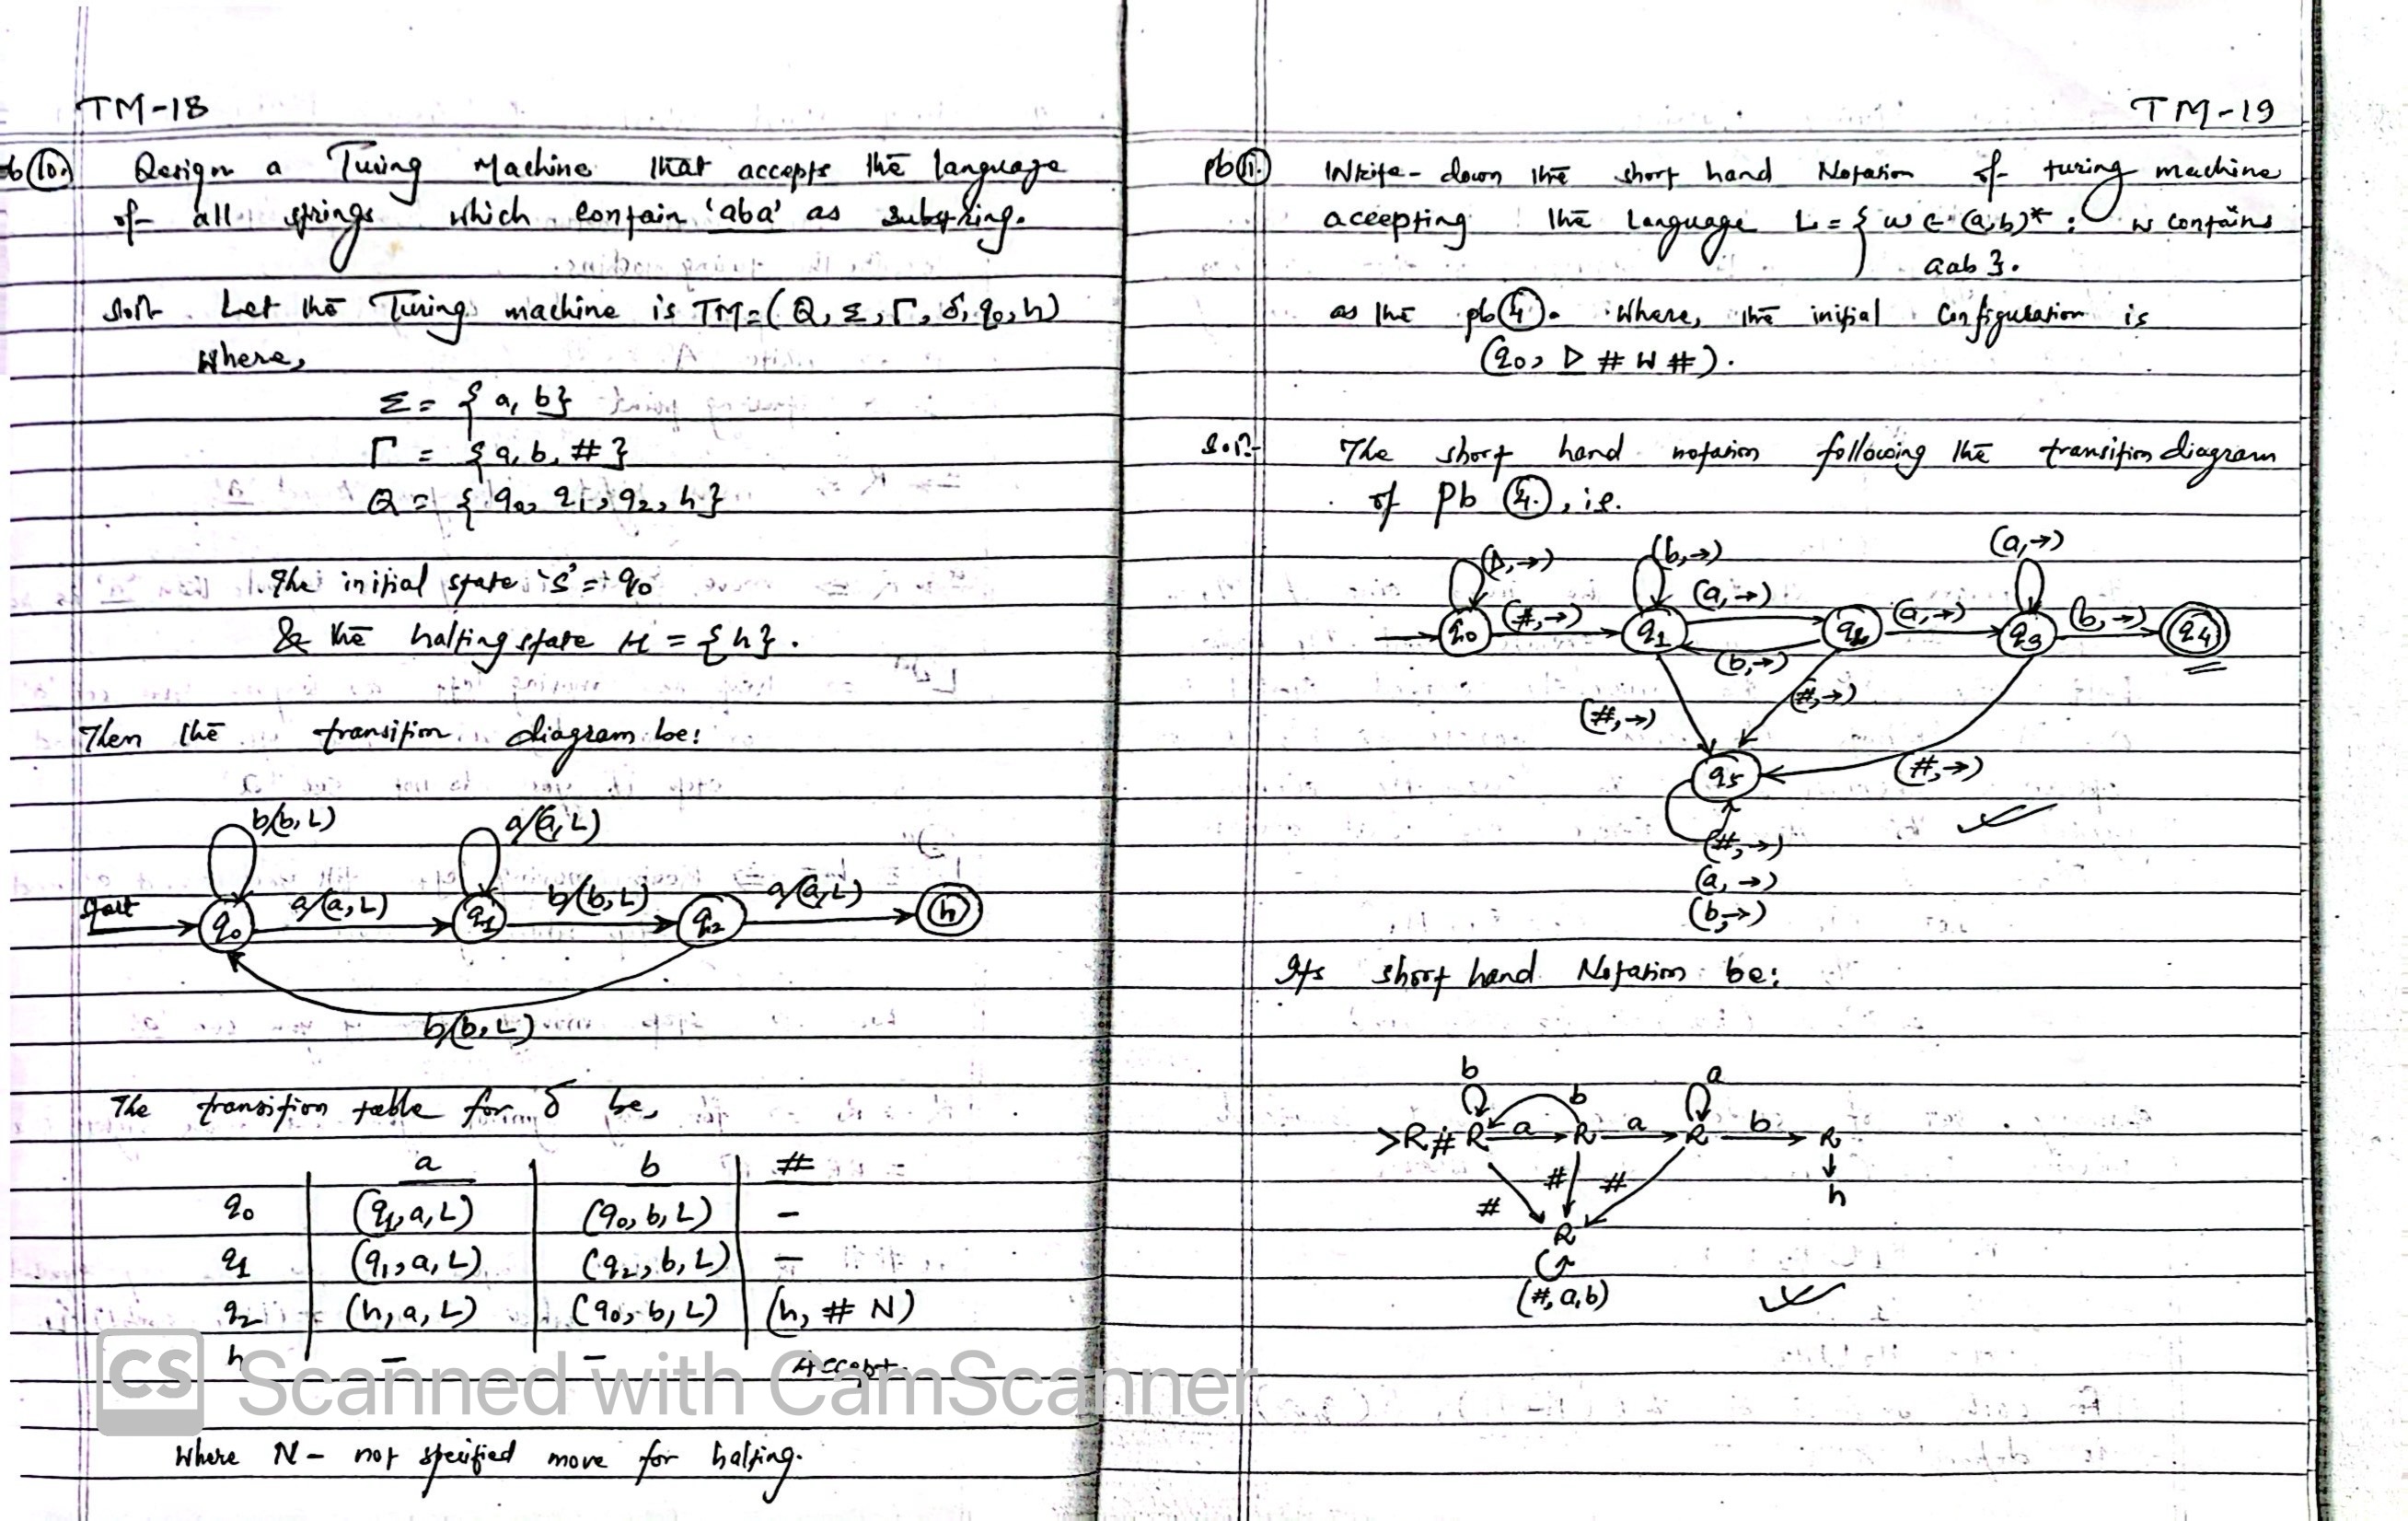 TM-18
b 10. Design a Turing Machine that accepts the language
of all strings which contain 'aba' as substring.
Soln Let the Turing machine is TM=(Q, Σ, Γ, δ, q0, h)
where,
Σ = {a, b}
Γ = {a, b, #}
Q = {q0, q1, q2, h}
The initial state 'S' = q0
& the halting state H = {h}.
Then the transition diagram be:
b/(b, L) a/(a, L)
Start q0 a/(a, L) q1 b/(b, L) q2 a/(a, L) h
b/(b, L)
The transition table for δ be,
a b #
q0 (q1, a, L) (q0, b, L) -
q1 (q1, a, L) (q2, b, L) -
q2 (h, a, L) (q0, b, L) (h, # N)
h - - Accept.
Where N - not specified move for halting.
TM-19
pb 11. Write-down the short hand Notation of turing machine
accepting the Language L = { w ∈ (a, b)* : w contains
aab }.
as the pb 4. Where, the initial Configuration is
(q0, ▷ # W #).
Soln The short hand notation following the transition diagram
of Pb 4., ie.
(▷, →) (b, →) (a, →)
q0 (#, →) q1 (a, →) q2 (a, →) q3 (b, →) q4
(b, →)
(#, →) (#, →)
q5 (#, →)
(#, →)
(a, →)
(b, →)
Its short hand Notation be:
b b a
>R# R a R a R b R
# # # h
R
(#, a, b)
CS Scanned with CamScanner